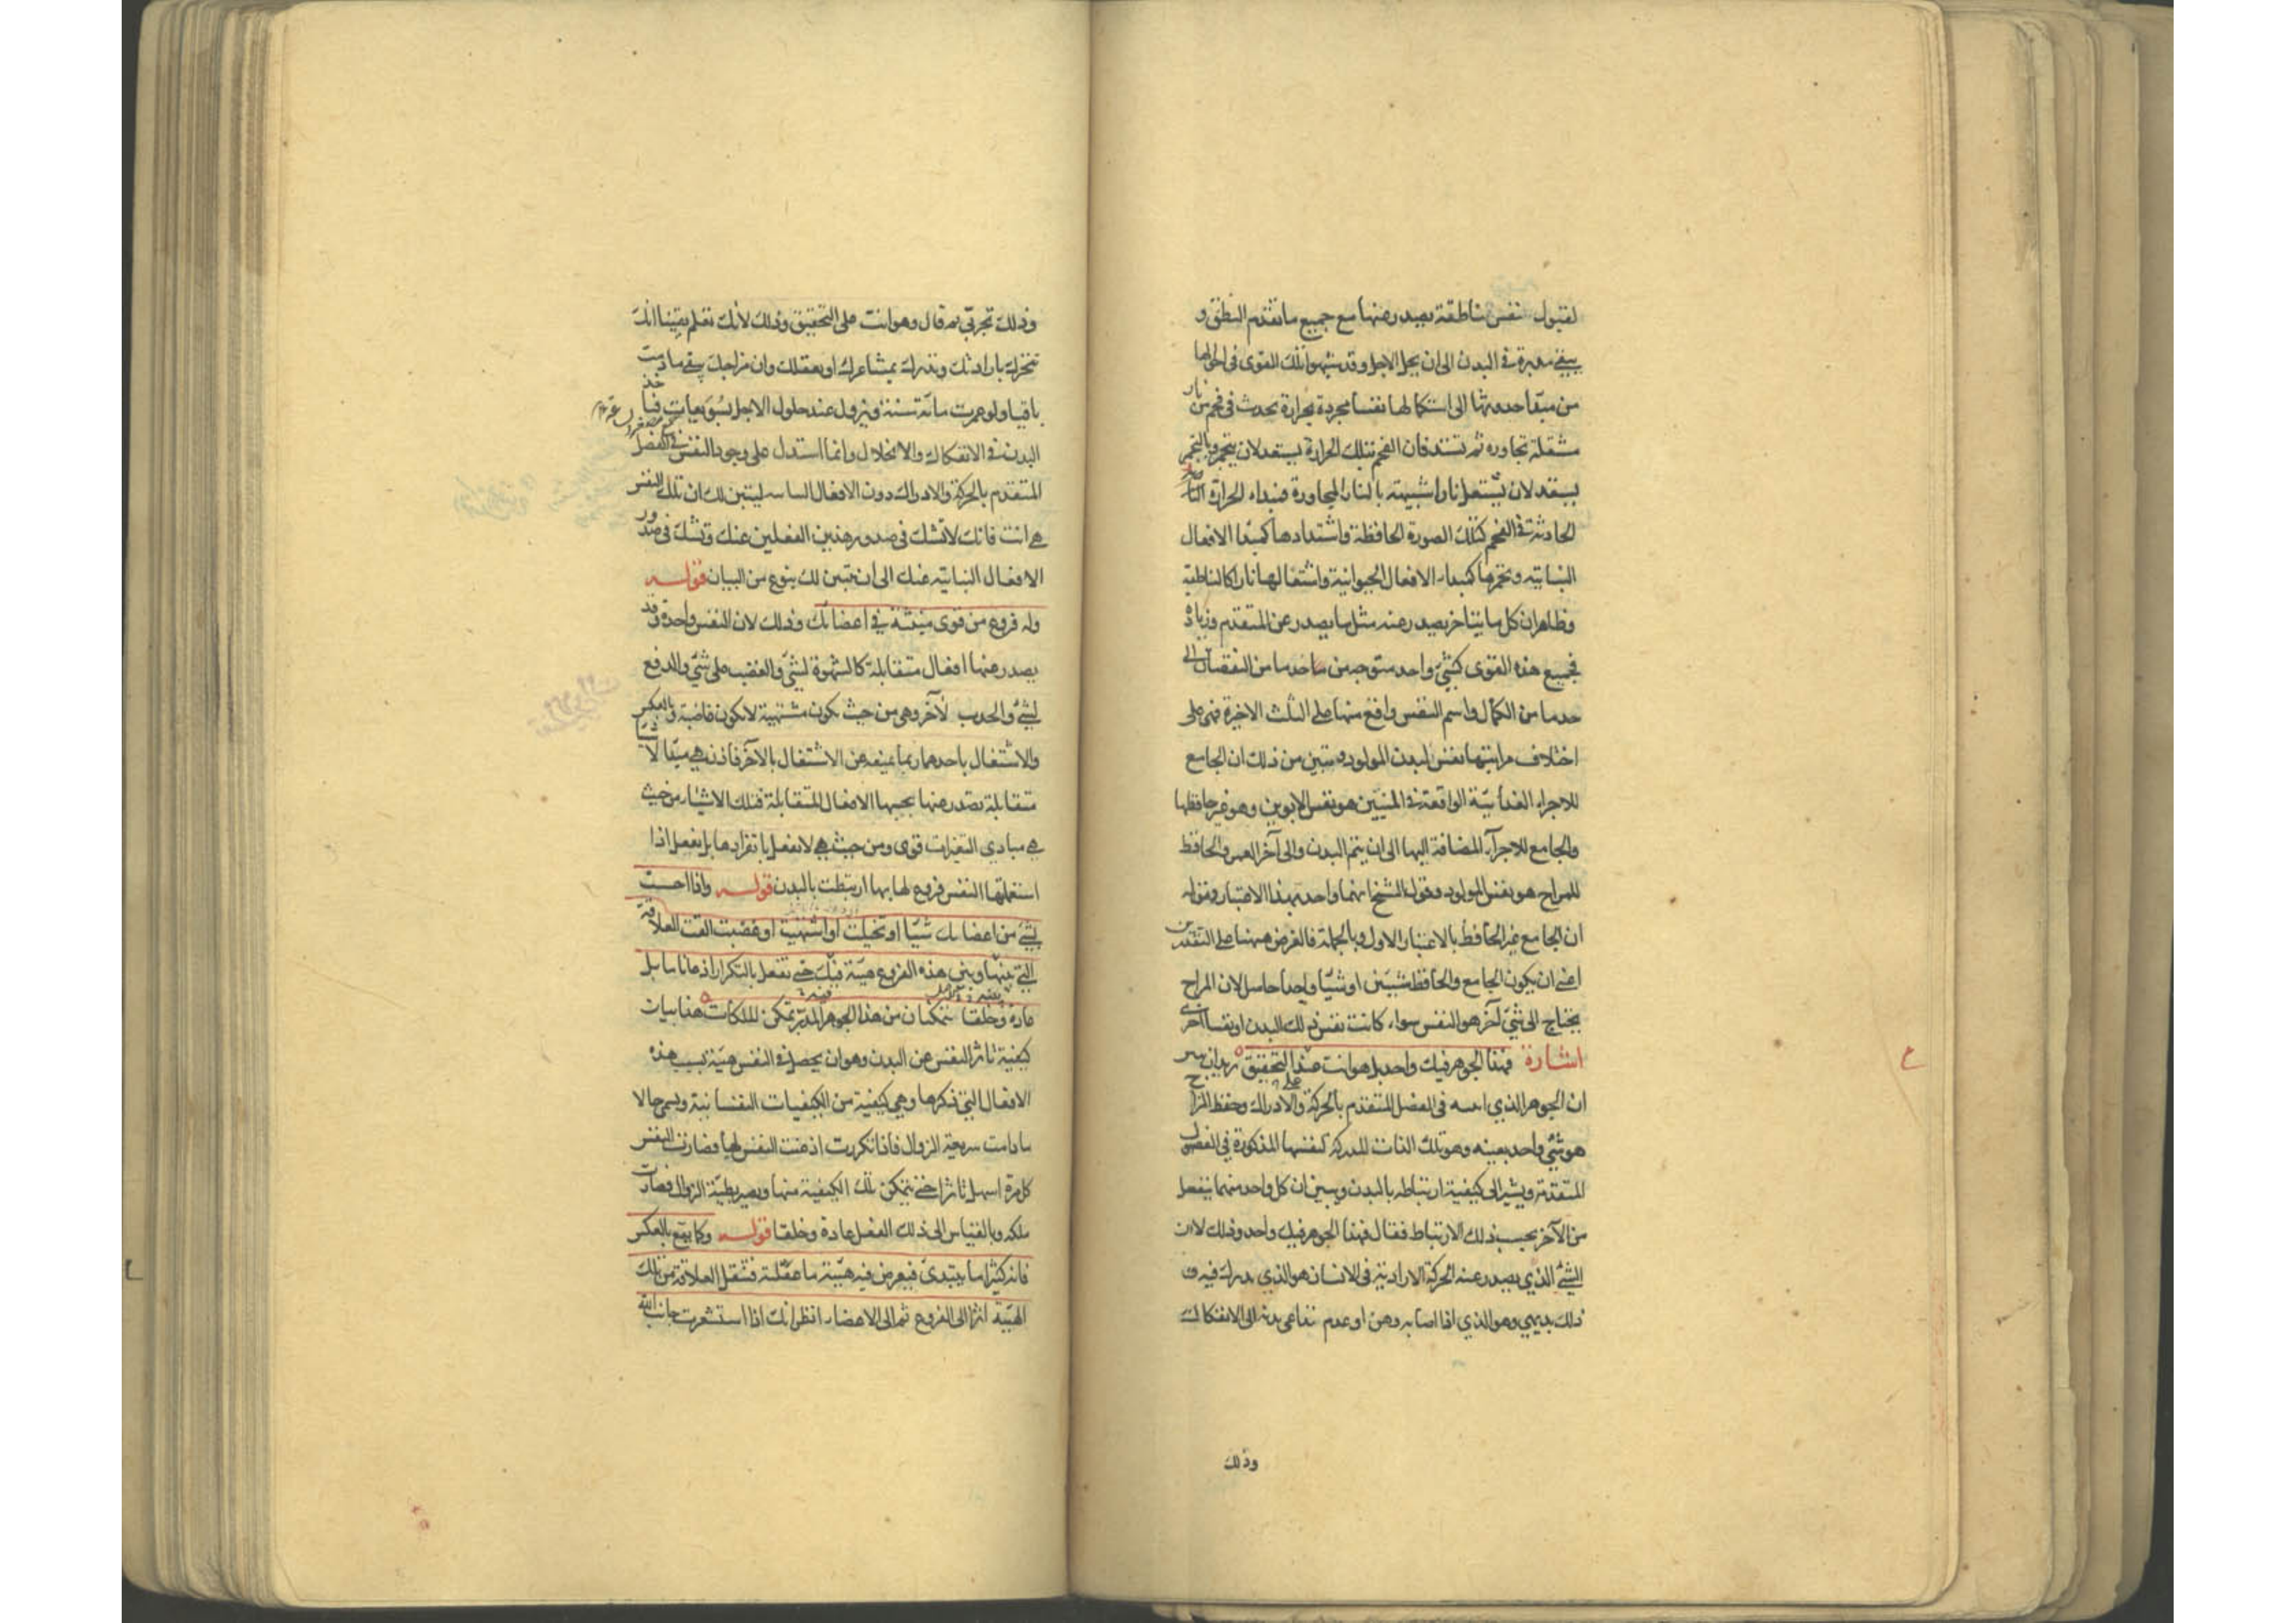 لقبول نفس ناطقة يصدر عنها مع جميع ما تقدم النطق و
يبقى مدبرة في البدن الى ان يحل الاجل وقد شبهوا تلك القوى في احوالها
من مبدأ حدوثها الى استكمالها نفسا مجردة بحرارة تحدث في فحم من نار
مشتعلة تجاوره ثم تشتد فان الفحم بتلك الحرارة يستعد لان يتجمر وبالتجمر
يستعد لان يشتعل نارا شبيهة بالنار المجاورة فمبداء الحرارة
الحادثة في الفحم كتلك الصورة الحافظة واشتدادها كمبدأ الافعال
النباتية وتجمرها كمبداء الافعال الحيوانية واشتعالها نارا كالناطقة
وظاهر ان كل ما يتأخر يصدر عنه مثل ما يصدر عن المتقدم وزيادة
فجميع هذه القوى كشئ واحد متوجه من حد ما من النقصان الى
حد ما من الكمال واسم النفس واقع منها على الثلث الاخيرة فهي على
اختلاف مراتبها نفس لبدن المولود وتبين من ذلك ان الجامع
للاجزاء الغذائية الواقعة في المنيين هو نفس الابوين وهو غير حافظها
والجامع للاجزاء المضافة اليها الى ان يتم البدن والى آخر العمر والحافظ
للمزاج هو نفس المولود وقول الشيخ انهما واحد بهذا الاعتبار وقوله
ان الجامع غير الحافظ بالاعتبار الاول وبالجملة فالغرض ههنا على التقديرين
اعني ان يكون الجامع والحافظ شيئين او شيئا واحدا حاصل لان المزاج
يحتاج الى شئ آخر هو النفس سواء كانت نفس ذلك البدن او نفسا اخرى
اشارة فهذا الجوهر فيك واحد بل هو انت عند التحقيق يريد ان يبين
ان الجوهر الذي اثبته في الفصل المتقدم بالحركة والادراك وحفظ المزاج
هو شئ واحد بعينه وهو تلك الذات المدركة لنفسها المذكورة في الفصول
المتقدمة ويشير الى كيفية ارتباطه بالبدن ويبين ان كل واحد منهما ينفعل
من الآخر بحسب ذلك الارتباط فقال فهذا الجوهر فيك واحد وذلك لان
الشئ الذي يصدر عنه الحركة الارادية في الانسان هو الذي يدرك فيه و
ذلك بديهي وهو الذي اذا اصابه وهن او عدم تداعى بدنه الى الانفكاك
وذلك
وذلك تجربي ثم قال وهو انت على التحقيق وذلك لانك تعلم يقينا انك
تتحرك بارادتك وتدرك بمشاعرك او بعقلك وان مزاجك يبقى ما دمت
باقيا ولو عمرت مائة سنة ويزول عند حلول الاجل بسويعات
البدن في الانفكاك والانحلال وانما استدل على وجود النفس في الفصل
المتقدم بالحركة والادراك دون الافعال النباتية ليتبين لك ان تلك النفس
هي انت فانك لا تشك في صدور هذين الفعلين عنك وتشك في صدور
الافعال النباتية عنك الى ان يتبين لك بنوع من البيان قوله
وله فروع من قوى منبثة في اعضائك وذلك لان النفس واحدة وقد
يصدر عنها افعال متقابلة كالشهوة لشئ والغضب على شئ والدفع
لشئ والجذب لآخر وهي من حيث تكون مشتهية لا تكون غاضبة وبالعكس
والاشتغال باحدهما ربما يمنعه عن الاشتغال بالآخر فاذن هي مبدأ لاشياء
متقابلة تصدر عنها بحسبها الافعال المتقابلة فتلك الاشياء من حيث
هي مبادي التغيرات قوى ومن حيث هي لا تفعل بانفرادها بل تفعل اذا
استعملتها النفس فروع لها بها ارتبطت بالبدن قوله واذا احسست
بشئ من اعضائك شيئا او تخيلت او اشتهيت او غضبت القت العلاقة
التي بينها وبين هذه الفروع هيئة فيك حتى تفعل بالتكرار اذعانا ما بل
عادة وخلقا يتمكنان من هذا الجوهر المدبر تمكن الملكات هذا بيان
كيفية تأثر النفس عن البدن وهو ان يحصل في النفس هيئة بسبب هذه
الافعال التي ذكرها وهي كيفية من الكيفيات النفسانية ويسمى حالا
ما دامت سريعة الزوال فاذا تكررت اذعنت النفس لها فصارت النفس
كل مرة اسهل تأثرا حتى يتمكن تلك الكيفية منها ويصير بطيئة الزوال فصارت
ملكة وبالقياس الى ذلك الفعل عادة وخلقا قوله وكما يقع بالعكس
فانه كثيرا ما يبتدئ فيعرض فيه هيئة ما عقلية فتنقل العلاقة من تلك
الهيئة اثرا الى الفروع ثم الى الاعضاء انظر انك اذا استشعرت جانب الله